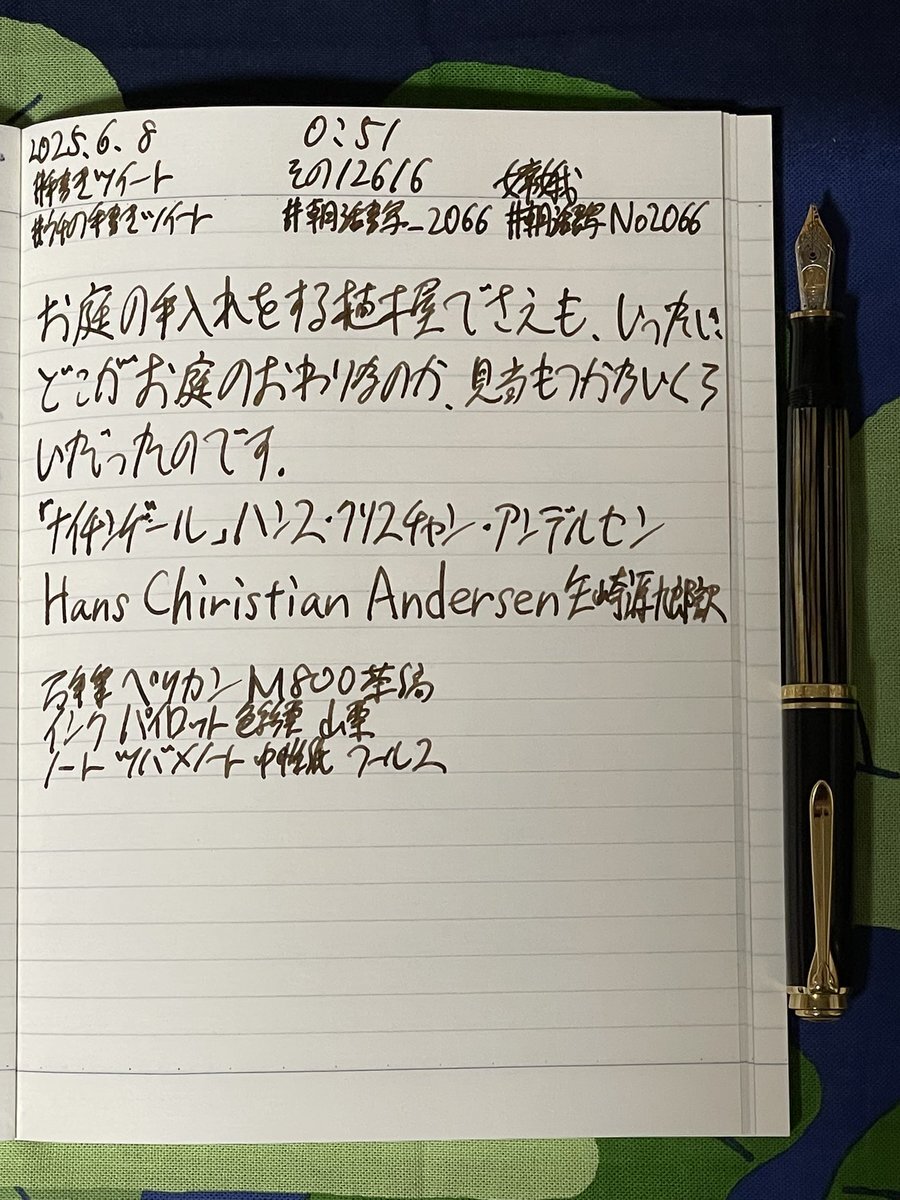 2025.6.8 0:51
#手書きツイート その12616
#万年筆の手書きツイート #朝活書写_2066 #朝活書写No2066
お庭の手入れをする植木屋でさえも、いったい、
どこがお庭のおわりなのか、見当もつかないくら
いだったのです。
「ナイチンゲール」ハンス・クリスチャン・アンデルセン
Hans Chiristian Andersen 矢崎源九郎訳
万年筆 ペリカン M800茶縞
インク パイロット 色彩雫 山栗
ノート ツバメノート 中性紙 フールス